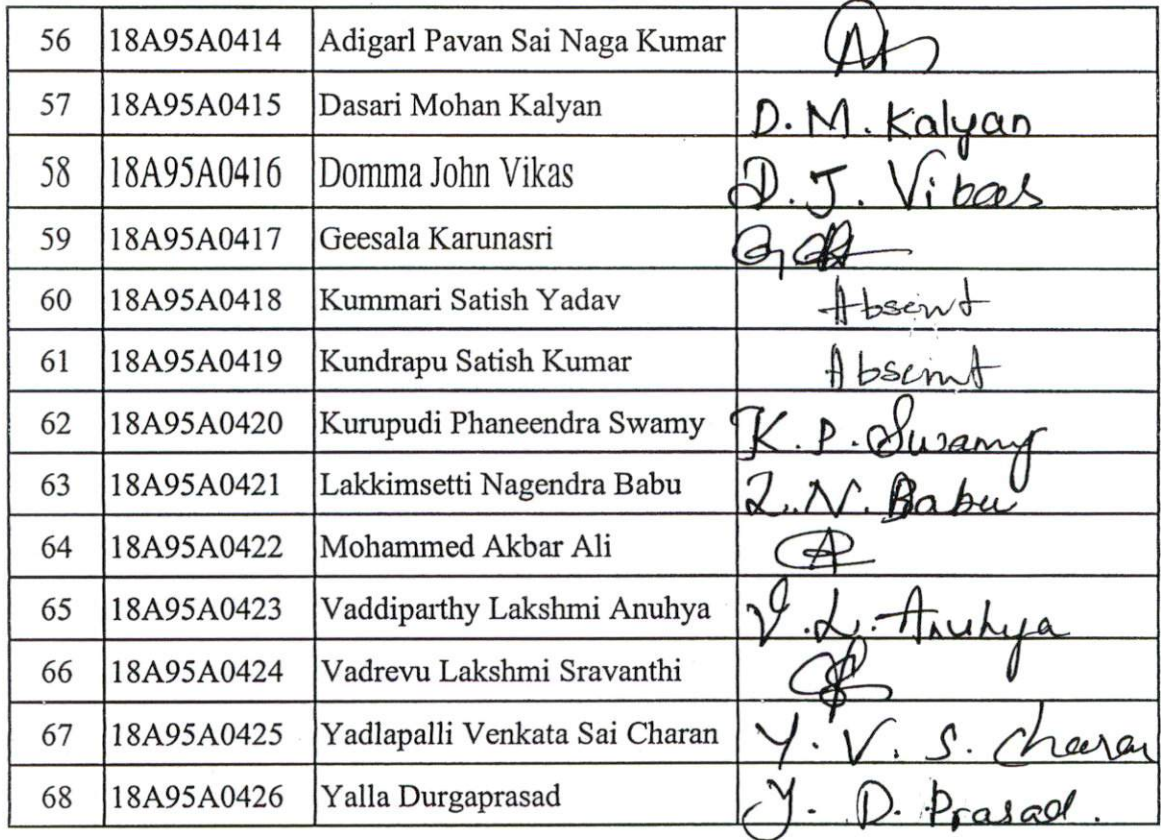 56 18A95A0414 Adigarl Pavan Sai Naga Kumar
57 18A95A0415 Dasari Mohan Kalyan D. M. Kalyan
58 18A95A0416 Domma John Vikas D. J. Vikas
59 18A95A0417 Geesala Karunasri
60 18A95A0418 Kummari Satish Yadav Absent
61 18A95A0419 Kundrapu Satish Kumar Absent
62 18A95A0420 Kurupudi Phaneendra Swamy K. P. Swamy
63 18A95A0421 Lakkimsetti Nagendra Babu L. N. Babu
64 18A95A0422 Mohammed Akbar Ali
65 18A95A0423 Vaddiparthy Lakshmi Anuhya V. L. Anuhya
66 18A95A0424 Vadrevu Lakshmi Sravanthi
67 18A95A0425 Yadlapalli Venkata Sai Charan Y. V. S. Charan
68 18A95A0426 Yalla Durgaprasad Y. D. Prasad.